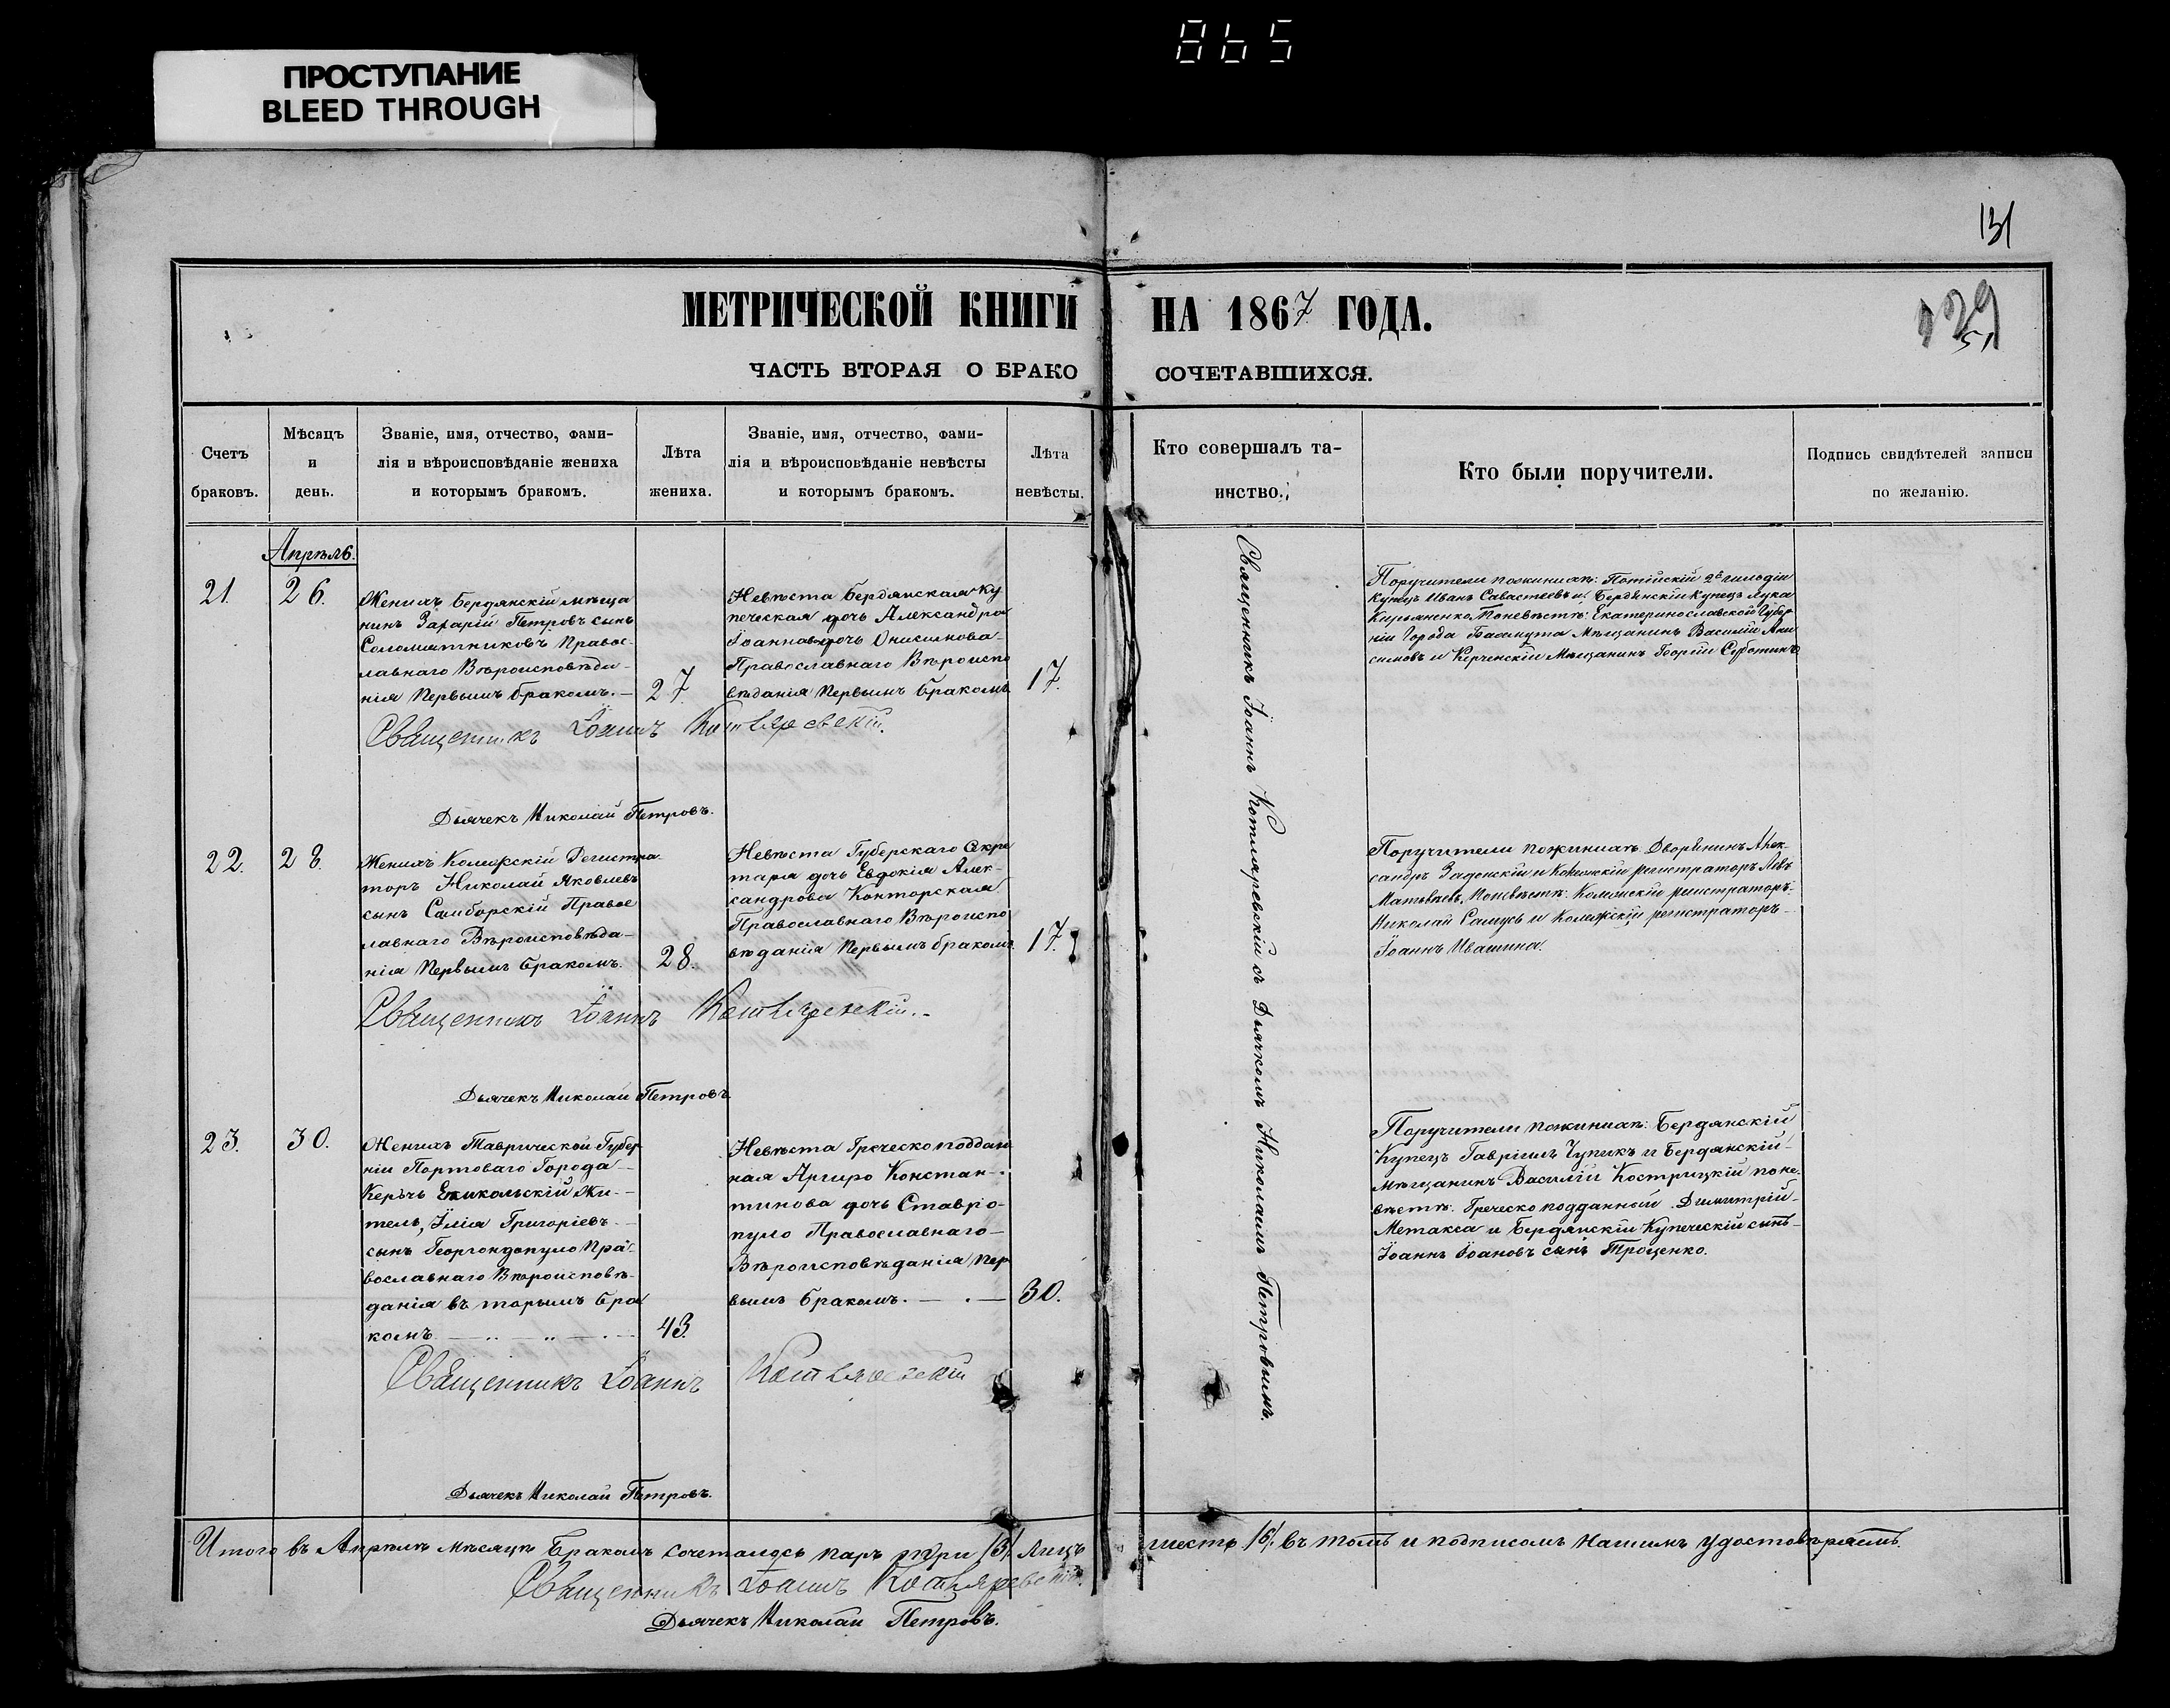 865
ПРОСТУПАНИЕ
BLEED THROUGH
131
129
51
МЕТРИЧЕСКОЙ КНИГИ НА 1867 ГОДА.
ЧАСТЬ ВТОРАЯ О БРАКО СОЧЕТАВШИХСЯ.
Счетъ
браковъ.
Мѣсяцъ
и
день.
Званіе, имя, отчество, фами-
лія и вѣроисповѣданіе жениха
и которымъ бракомъ.
Лѣта
жениха.
Званіе, имя, отчество, фами-
лія и вѣроисповѣданіе невѣсты
и которымъ бракомъ.
Лѣта
невѣсты.
Кто совершалъ та-
инство.
Кто были поручители.
Подпись свидѣтелей записи
по желанію.
Апрѣль.
21.
26.
Женихъ Бердянскій мѣща
нинъ Захарій Петровъ сынъ
Соломятниковъ Правос-
лавнаго Вѣроисповѣда-
нія Первымъ бракомъ.—
27.
Невѣста Бердянская ку
печеская дочь Александра
Іоаннова дочь Онисимова
Православнаго Вѣроиспо
вѣданія Первымъ бракомъ
17.
Священникъ Іоаннъ Котляревскій
Дьячекъ Николай Петровъ.
Священникъ Іоаннъ Котляревскій съ Дьячкомъ Николаемъ Петровымъ.
Поручители по женихѣ: Потійскій 2й гильдіи
Купецъ Иванъ Савастеевъ и Бердянскій купецъ Лука
Кирьяненко, По невѣстѣ: Екатеринославской Губер
ніи Города Бахмута Мѣщанинъ Василій Ани
симовъ и Керченскій Мѣщанинъ Георгій Суботинъ
22.
28.
Женихъ Колежскій Регистра
торъ Николай Яковлевъ
сынъ Самборскій Правос
лавнаго Вѣроисповѣда-
нія Первымъ бракомъ.
28.
Невѣста Губерскаго Секре
таря дочь Евдокія Алек-
сандрова Конторская
Православнаго Вѣроиспо
вѣданія Первымъ бракомъ
17.
Священникъ Іоаннъ Котляревскій.
Дьячекъ Николай Петровъ
Поручители по женихѣ Дворянинъ Алек-
сандръ Задонскій и Колежскій регистраторъ Левъ
Матвѣевъ, По невѣстѣ: Колежскій регистраторъ
Николай Самусь и Колежскій регистраторъ
Іоаннъ Ивашина.
23.
30.
Женихъ Таврической Губер
ніи Портоваго Города
Керчь Еникольскій Жи-
тель, Илія Григоріевъ
сынъ Георгондопуло Пра-
вославнаго Вѣроисповѣ-
данія въ торымъ бра
комъ
43.
Невѣста Греческоподдан
ная Аргиро Констан-
тинова дочь Ставро-
пуло Православнаго
Вѣроисповѣданія Пер
вымъ бракомъ.
30.
Священникъ Іоаннъ Котляревскій
Дьячекъ Николай Петровъ.
Поручители по женихѣ: Бердянскій
Купецъ Гавріилъ Чупикъ и Бердянскій
Мѣщанинъ Василій Кострицкій по не-
вѣстѣ: Греческо подданный Димитрій
Метакса и Бердянскій Купеческій сынъ
Іоаннъ Іоановъ сынъ Троценко.
Итого въ Апрѣлѣ мѣсяцѣ Бракомъ сочеталось паръ три /3/ лицъ шесть /6/ въ томъ и подписомъ нашимъ удостовѣряемъ.
Священникъ Іоаннъ Котляревскій.
Дьячекъ Николай Петровъ.